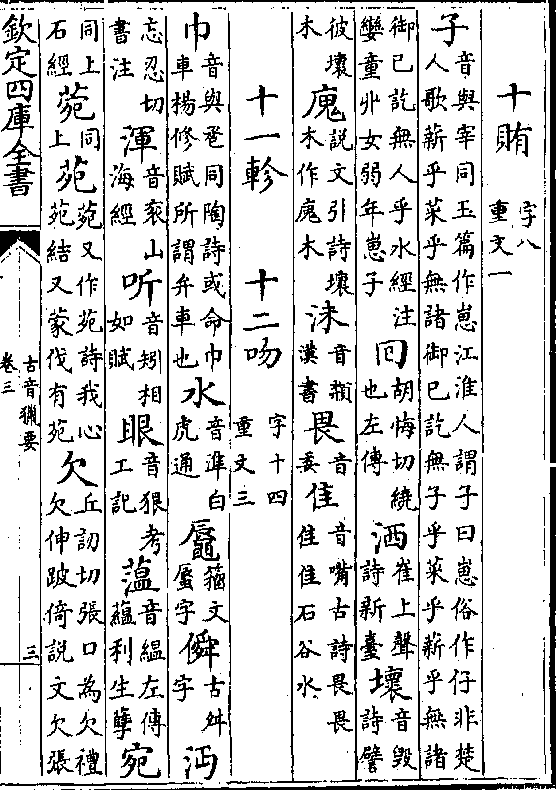 十賄 字八重文一
子音與宰同玉篇作崽江淮人謂子曰崽俗作仔非楚人歌薪乎菜乎無諸御已訖無子乎菜乎薪乎無諸
御已訖無人乎水經注孌童丱女弱年崽子 囘胡悔切繞也左傳 洒崔上聲詩新臺 壞音毁詩譬
彼壞木 廆說文引詩壞木作廆木 沬音頮漢書 畏音委 隹音嘴古詩畏畏隹隹石谷水
十一軫 十二吻 字十四重文三
巾音與巹同陶詩或命巾車楊修賦所謂弁車也 水音準白虎通 蜃籀文蜃字 僢古舛字 沔
忘忍切書注 渾音衮山海經 听音矧相如賦 眼音狠考工記 薀音緼左傳蘊利生孽 宛
同上石經 菀同上 苑菀又作苑詩我心苑結又蒙伐有苑 欠丘訒切張口為欠禮欠伸跛倚說文欠張
欽定四庫全書
古音獵要
卷三
三